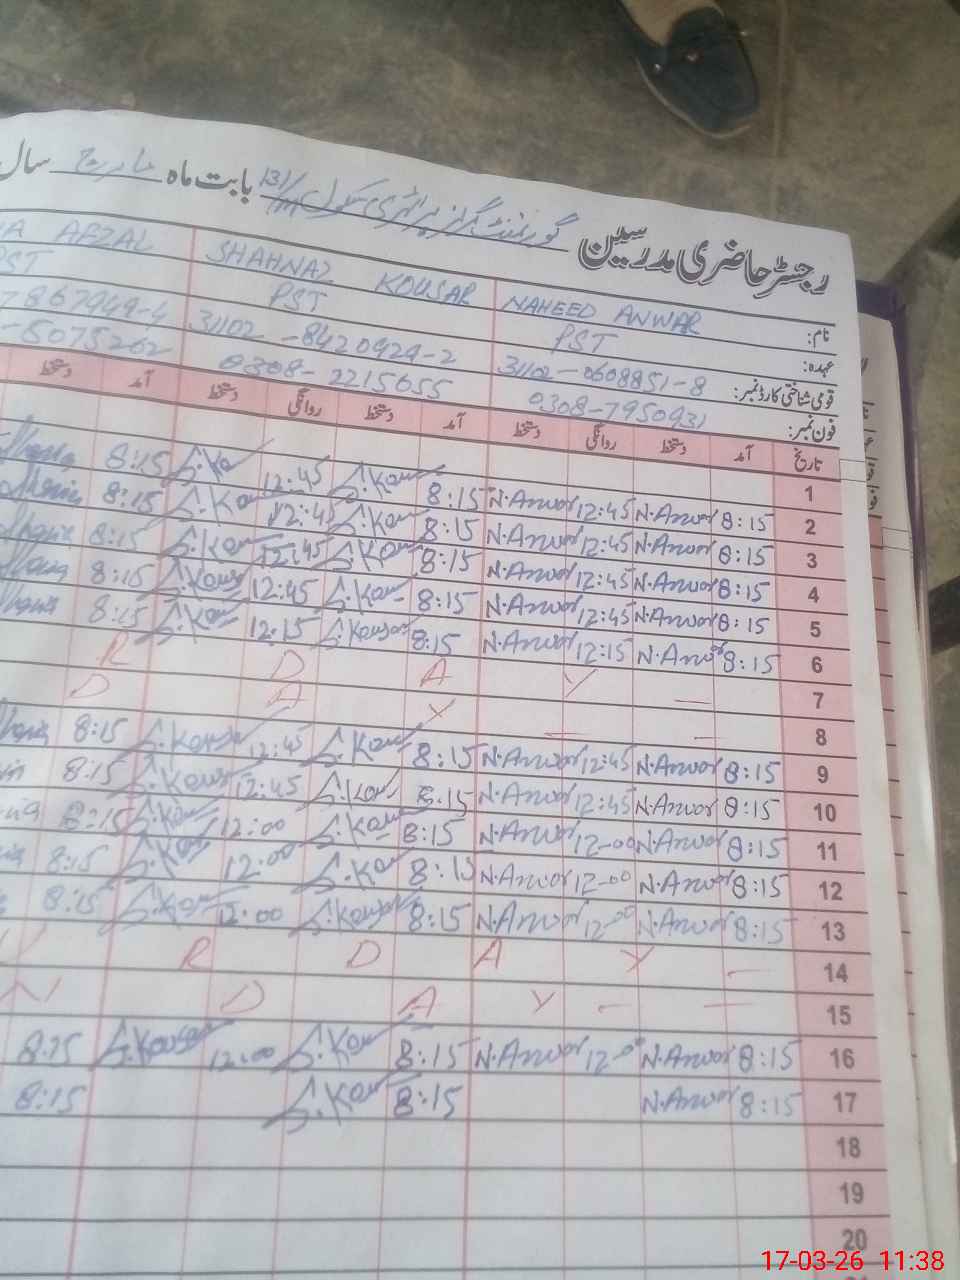 رجسٹر حاضری مدرسین گورنمنٹ گرلز پرائمری سکول 131/ بابت ماہ مارچ سال
نام: NAHEED ANWAR SHAHNAZ KOUSAR AFZAL
عہدہ: PST PST PST
قومی شناختی کارڈ نمبر: 31102-0608851-8 31102-8420924-2 7867949-4
فون نمبر: 0308-7950931 0308-2215655 -5075262
تاریخ آمد دستخط روانگی دستخط آمد دستخط روانگی دستخط آمد دستخط
1
2 8:15 N.Anwar 12:45 N.Anwar 8:15 S.Kou 12:45 S.Ko 8:15
3 8:15 N.Anwar 12:45 N.Anwar 8:15 S.Kou 12:45 S.Kou 8:15
4 8:15 N.Anwar 12:45 N.Anwar 8:15 S.Kou 12:45 S.Kou 8:15
5 8:15 N.Anwar 12:45 N.Anwar 8:15 S.Kou 12:45 S.Kous 8:15
6 8:15 N.Anwar 12:15 N.Anwar 8:15 S.Kousar 12:15 S.Kou 8:15
7 — Y A D R
8 — — Y A D
9 8:15 N.Anwar 12:45 N.Anwar 8:15 S.Kou 12:45 S.Kousar 8:15
10 8:15 N.Anwar 12:45 N.Anwar 8:15 S.Kou 12:45 S.Kous 8:15
11 8:15 N.Anwar 12-00 N.Anwar 8:15 S.Kou 12:00 S.Kou 8:15
12 8:15 N.Anwar 12-00 N.Anwar 8:15 S.Kou 12:00 S.Kou 8:15
13 8:15 N.Anwar 12-00 N.Anwar 8:15 S.Kousar 12:00 S.Kou 8:15
14 — Y A D R
15 — — Y A D N
16 8:15 N.Anwar 12-00 N.Anwar 8:15 S.Kou 12:00 S.Kousar 8:15
17 8:15 N.Anwar 8:15 S.Kou 8:15
18
19
20
17-03-26 11:38